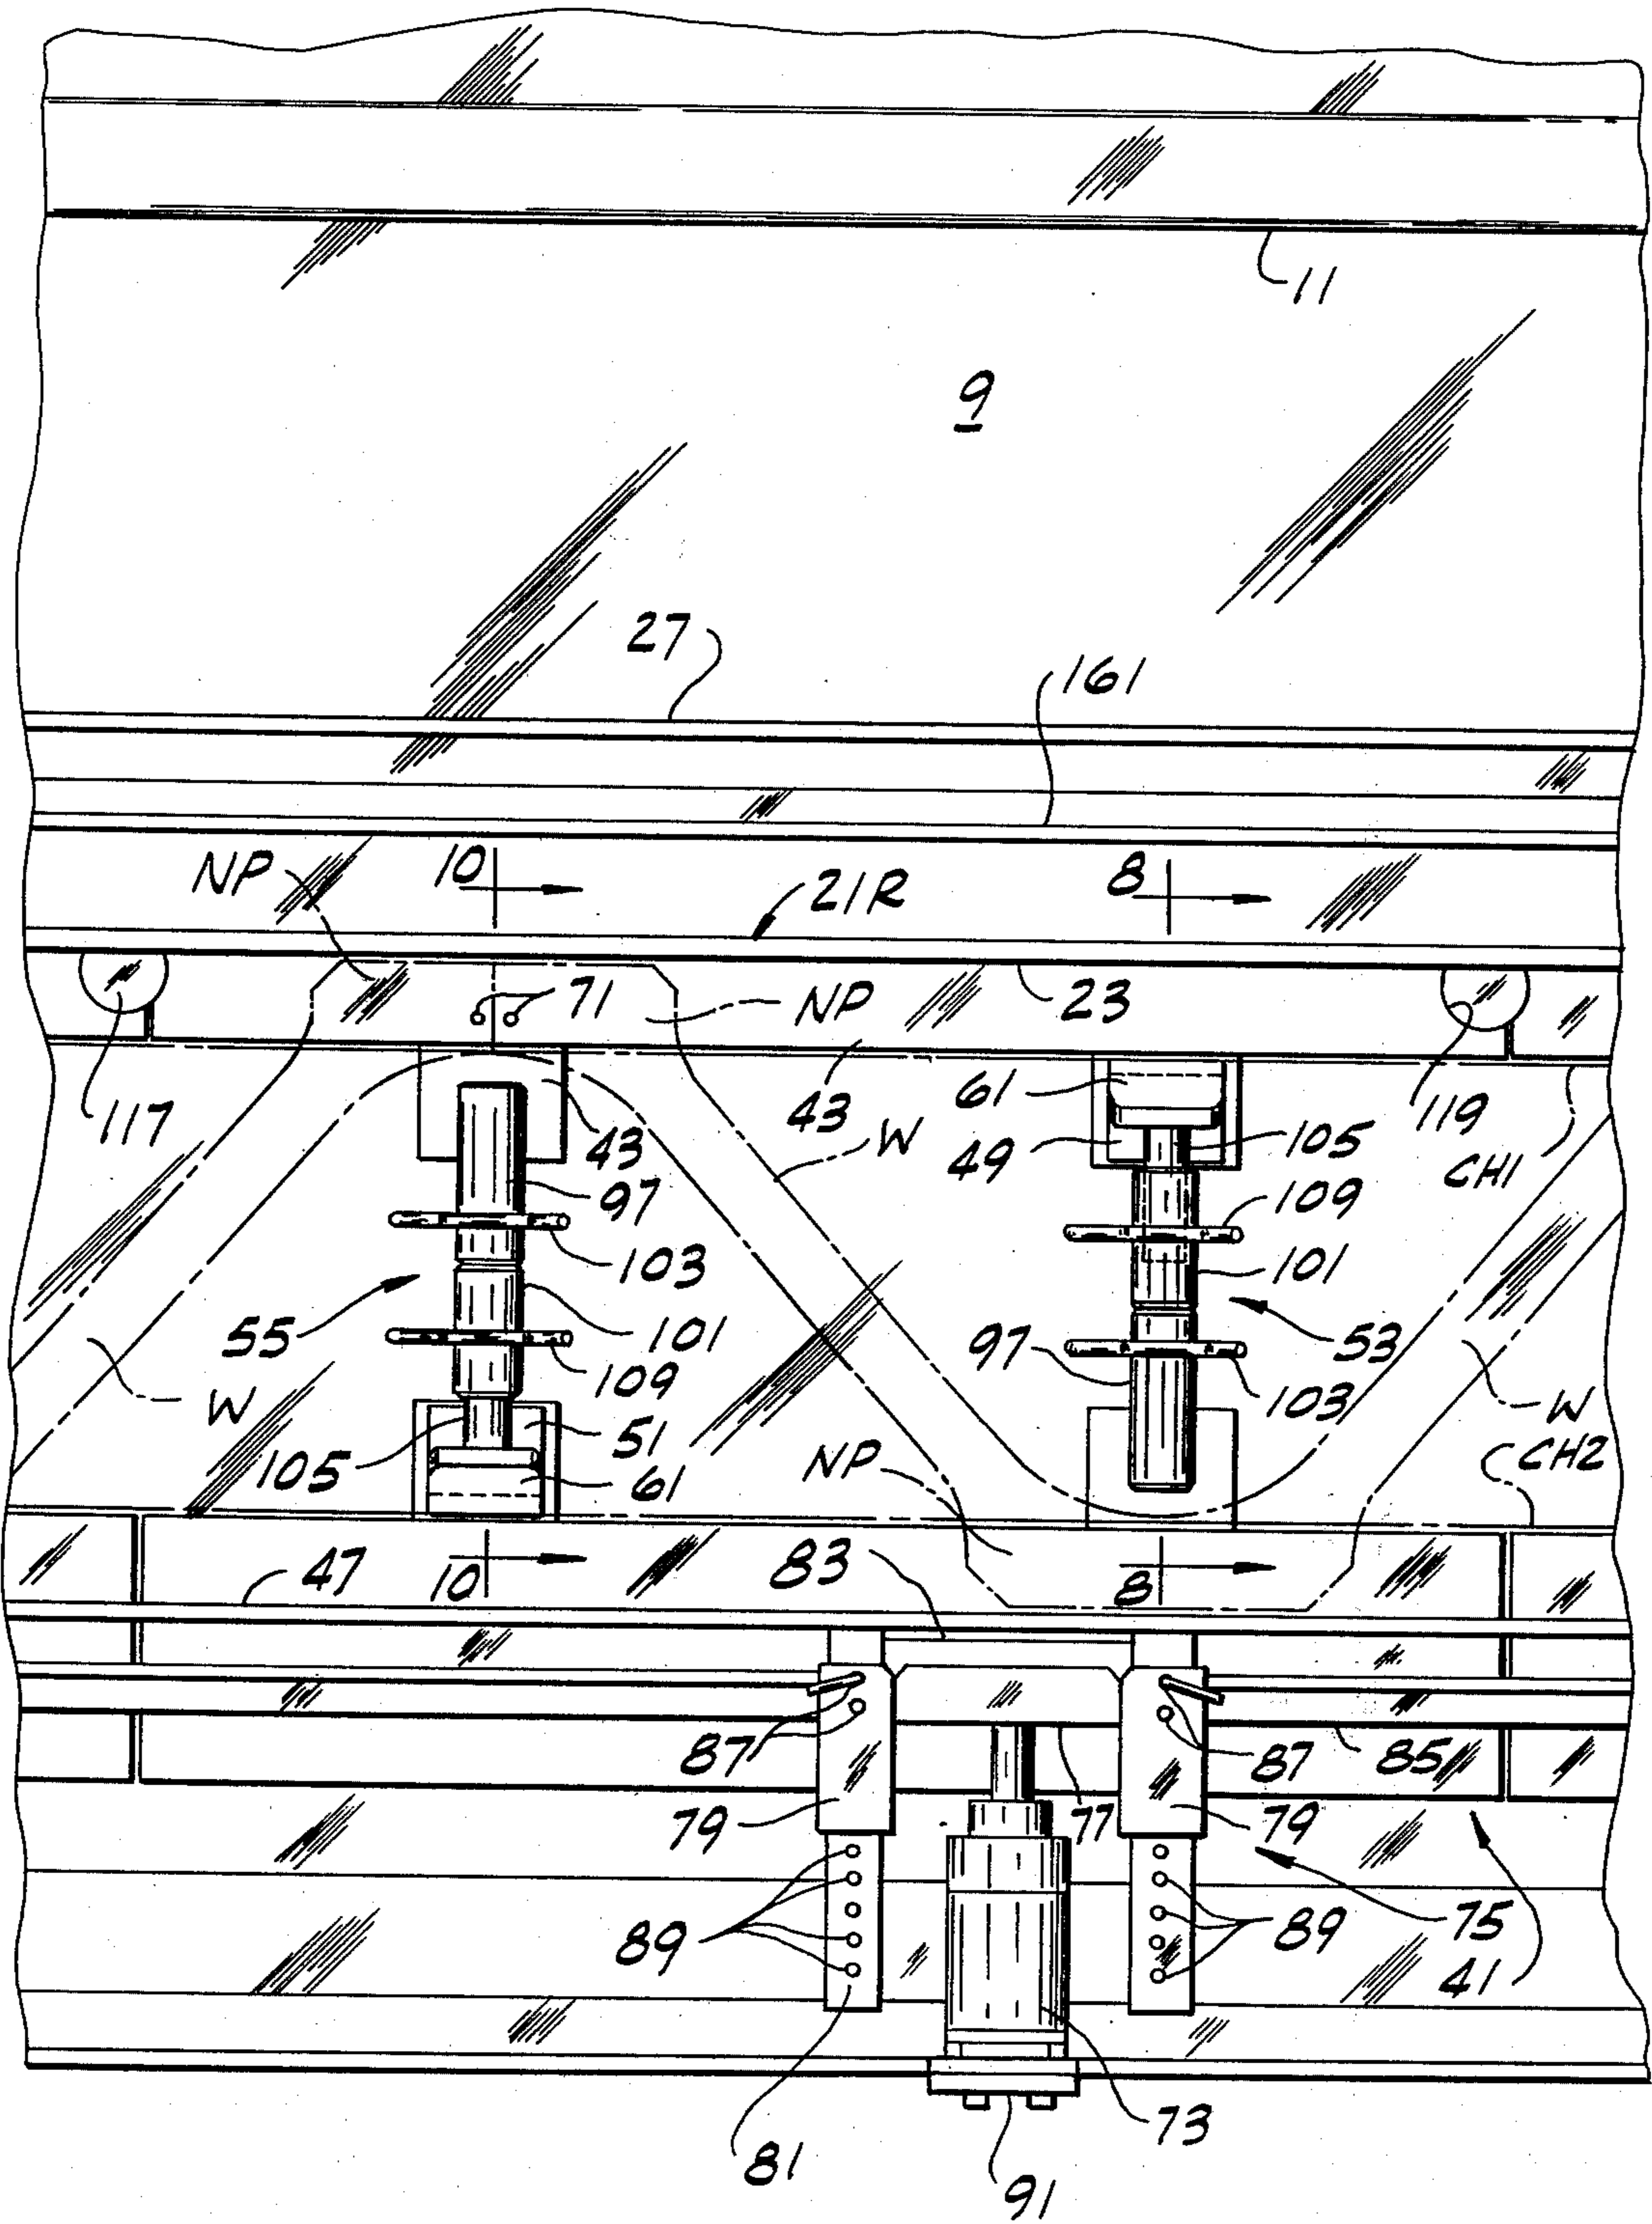 11
9
27
161
NP
10
8
21R
71
NP
23
117
43
43
61
119
W
49
105
CH1
97
109
103
101
55
101
97
53
109
103
W
W
105
51
61
NP
CH2
47
10
83
8
87
87
85
79
77
79
89
89
75
41
81
73
91